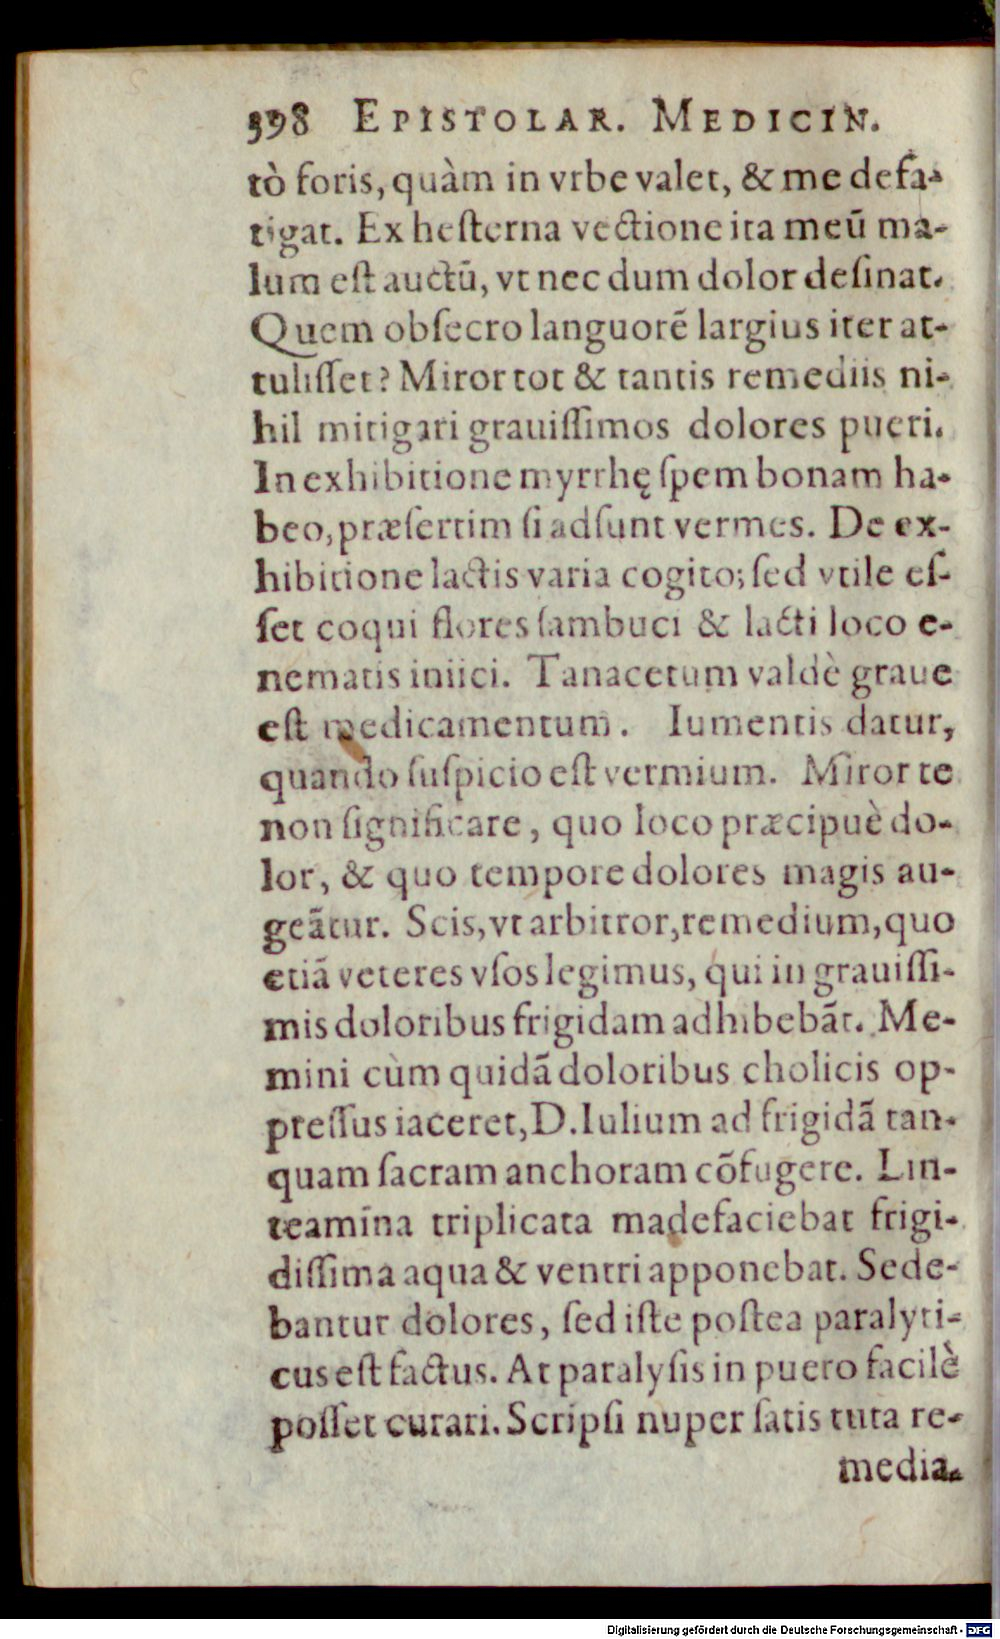 398 EPISTOLAR. MEDICIN.
tò foris, quàm in vrbe valet, & me defa-
tigat. Ex hesterna vectione ita meū ma-
lum est auctū, vt nec dum dolor desinat.
Quem obsecro languorē largius iter at-
tulisset? Miror tot & tantis remediis ni-
hil mitigari grauissimos dolores pueri.
In exhibitione myrrhę spem bonam ha-
beo, præsertim si adsunt vermes. De ex-
hibitione lactis varia cogito; sed vtile es-
set coqui flores sambuci & lacti loco e-
nematis iniici. Tanacetum valdè graue
est medicamentum. Iumentis datur,
quando suspicio est vermium. Miror te
non significare, quo loco præcipuè do-
lor, & quo tempore dolores magis au-
geātur. Scis, vt arbitror, remedium, quo
etiā veteres vsos legimus, qui in grauissi-
mis doloribus frigidam adhibebāt. Me-
mini cùm quidā doloribus cholicis op-
pressus iaceret, D. Iulium ad frigidā tan-
quam sacram anchoram cōfugere. Lin-
teamina triplicata madefaciebat frigi-
dissima aqua & ventri apponebat. Sede-
bantur dolores, sed iste postea paralyti-
cus est factus. At paralysis in puero facilè
posset curari. Scripsi nuper satis tuta re-
media.
Digitalisierung gefördert durch die Deutsche Forschungsgemeinschaft - DFG